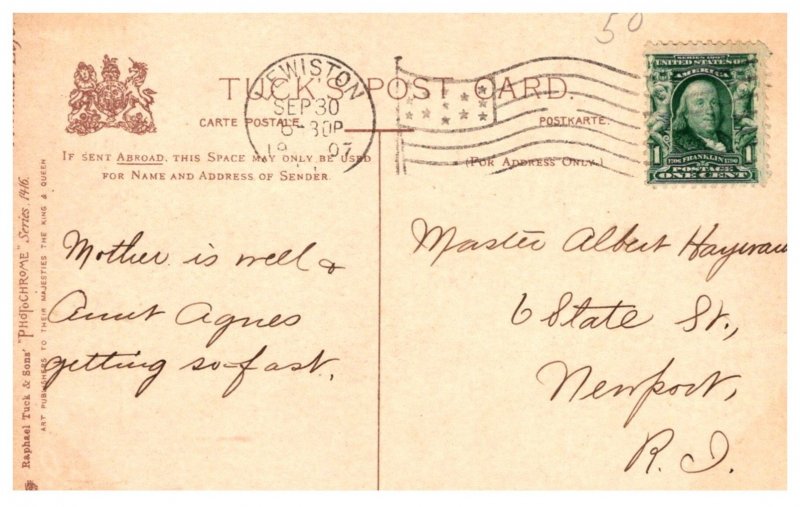 50
TUCK'S POST CARD.
CARTE POSTALE.
POSTKARTE.
LEWISTON
SEP 30
8-30P
1907
IF SENT ABROAD, THIS SPACE MAY ONLY BE USED
FOR NAME AND ADDRESS OF SENDER.
(FOR ADDRESS ONLY.)
SERIES 1902
UNITED STATES OF
AMERICA
1706 FRANKLIN 1790
POSTAGE
1 ONE CENT 1
Raphael Tuck & Sons' "PHOTOCHROME" Series. 1416.
ART PUBLISHERS TO THEIR MAJESTIES THE KING & QUEEN
Mother is well &
Aunt Agnes
getting so-fast.
Master Albert
6 State St.,
Newport,
R. I.